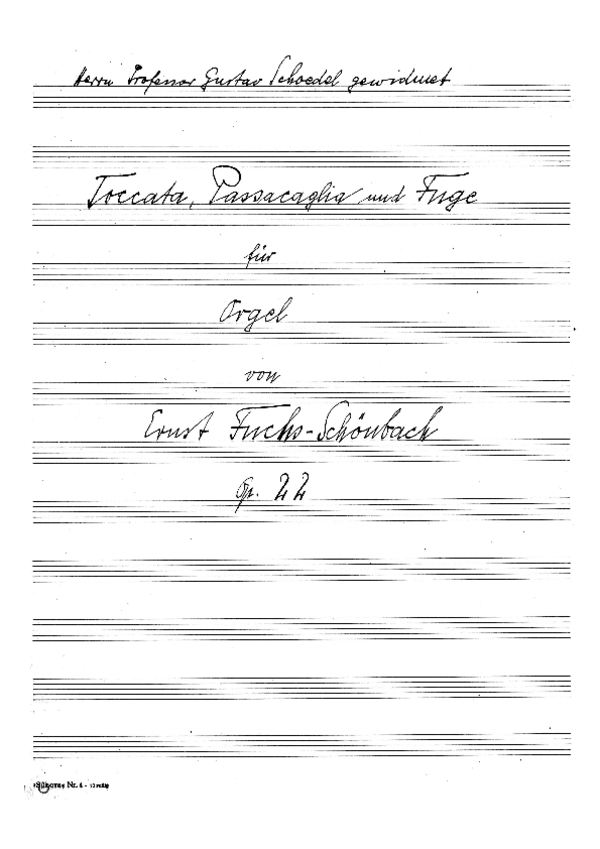 Herrn Professor Gustav Schoedel gewidmet
Toccata, Passacaglia und Fuge
für
Orgel
von
Ernst Fuchs-Schönbach
Op. 22
Nr. 4 - 12